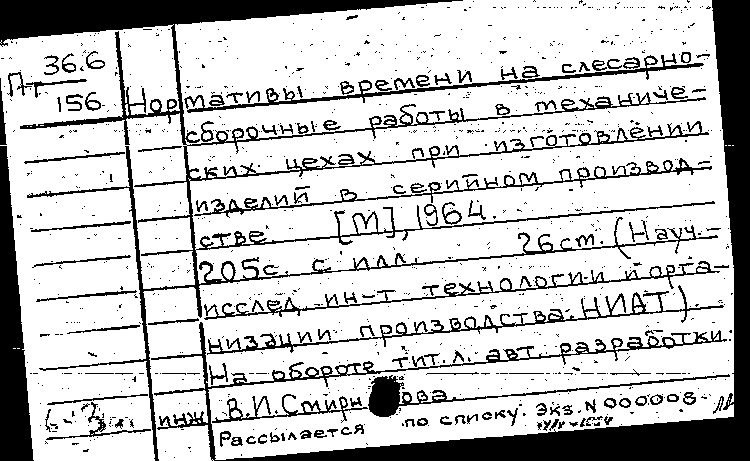 Пт 36.6
156
Нормативы времени на слесарно-
сборочные работы в механиче-
ских цехах при изготовлении
изделий в серийном производ-
стве. [М], 1964.
205с. с илл. 26cm. (Науч.-
исслед. ин-т технологии и орга-
низации производства. НИАТ).
На обороте тит. л. авт. разработки:
инж. В.И. Смирнова.
Рассылается по списку. Экз. N 000008